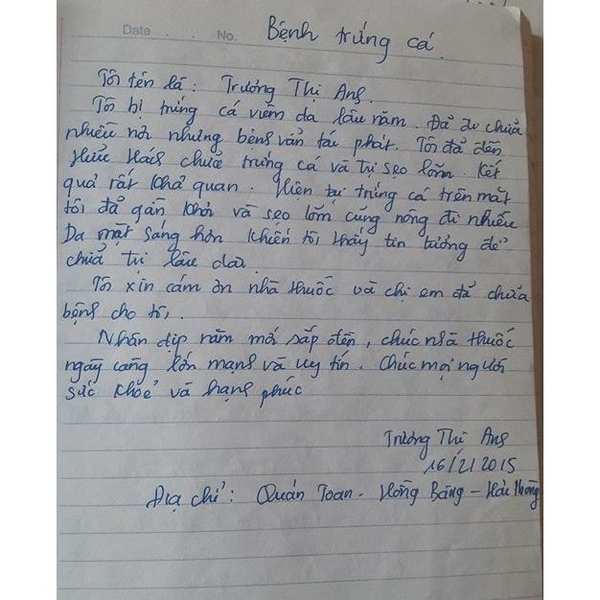 Date . . No.
Bệnh trứng cá.
Tôi tên là : Trương Thị Ang.
Tôi bị trứng cá viêm da lâu năm. Đã đi chữa
nhiều nơi nhưng bệnh vẫn tái phát. Tôi đã đến
Hữu Hách chữa trứng cá và trị sẹo lõm. Kết
quả rất khả quan. Hiện tại trứng cá trên mặt
tôi đã gần khỏi và sẹo lõm cũng nông đi nhiều
Da mặt sáng hơn khiến tôi thấy tin tưởng để
chữa trị lâu dài.
Tôi xin cảm ơn nhà thuốc và chị em đã chữa
bệnh cho tôi.
Nhân dịp năm mới sắp đến, chúc nhà thuốc
ngày càng lớn mạnh và uy tín. Chúc mọi người
sức khoẻ và hạnh phúc
Trương Thị Ang
16/2/2015
Địa chỉ : Quán Toan - Hồng Bàng - Hải Phòng